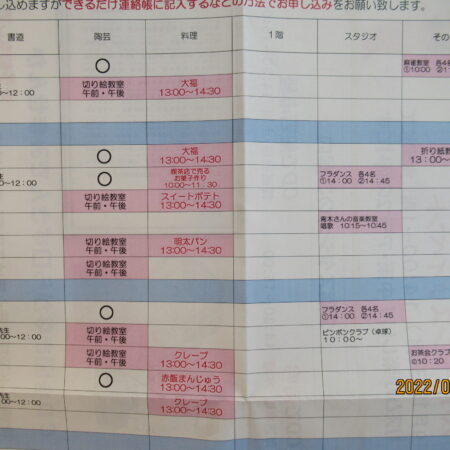 し込めますができるだけ連絡帳に記入するなどの方法でお申し込みをお願い致します。
書道 陶芸 料理 1階 スタジオ その
○ 麻雀教室 各4名
①10:00 ②11
～12:00 切り絵教室 大福
午前・午後 13:00～14:30
○ 大福 折り紙教
13:00～14:30 13:00～
生 ○ 喫茶店で売る フラダンス 各4名
00～12:00 お菓子作り ①14:00 ②14:45
10:00～11:30
切り絵教室 スイートポテト
午前・午後 13:00～14:30
青木さんの音楽教室
唱歌 10:15～10:45
切り絵教室 明太パン
午前・午後 13:00～14:30
切り絵教室
午前・午後
○ フラダンス 各4名
①14:00 ②14:45
先生 切り絵教室 ピンポンクラブ（卓球）
00～12:00 午前・午後 10:00～
切り絵教室 クレープ お茶会クラブ
午前・午後 13:00～14:30 10:20
○ 赤飯まんじゅう
13:00～14:30
2022/0
先生 クレープ
00～12:00 13:00～14:30